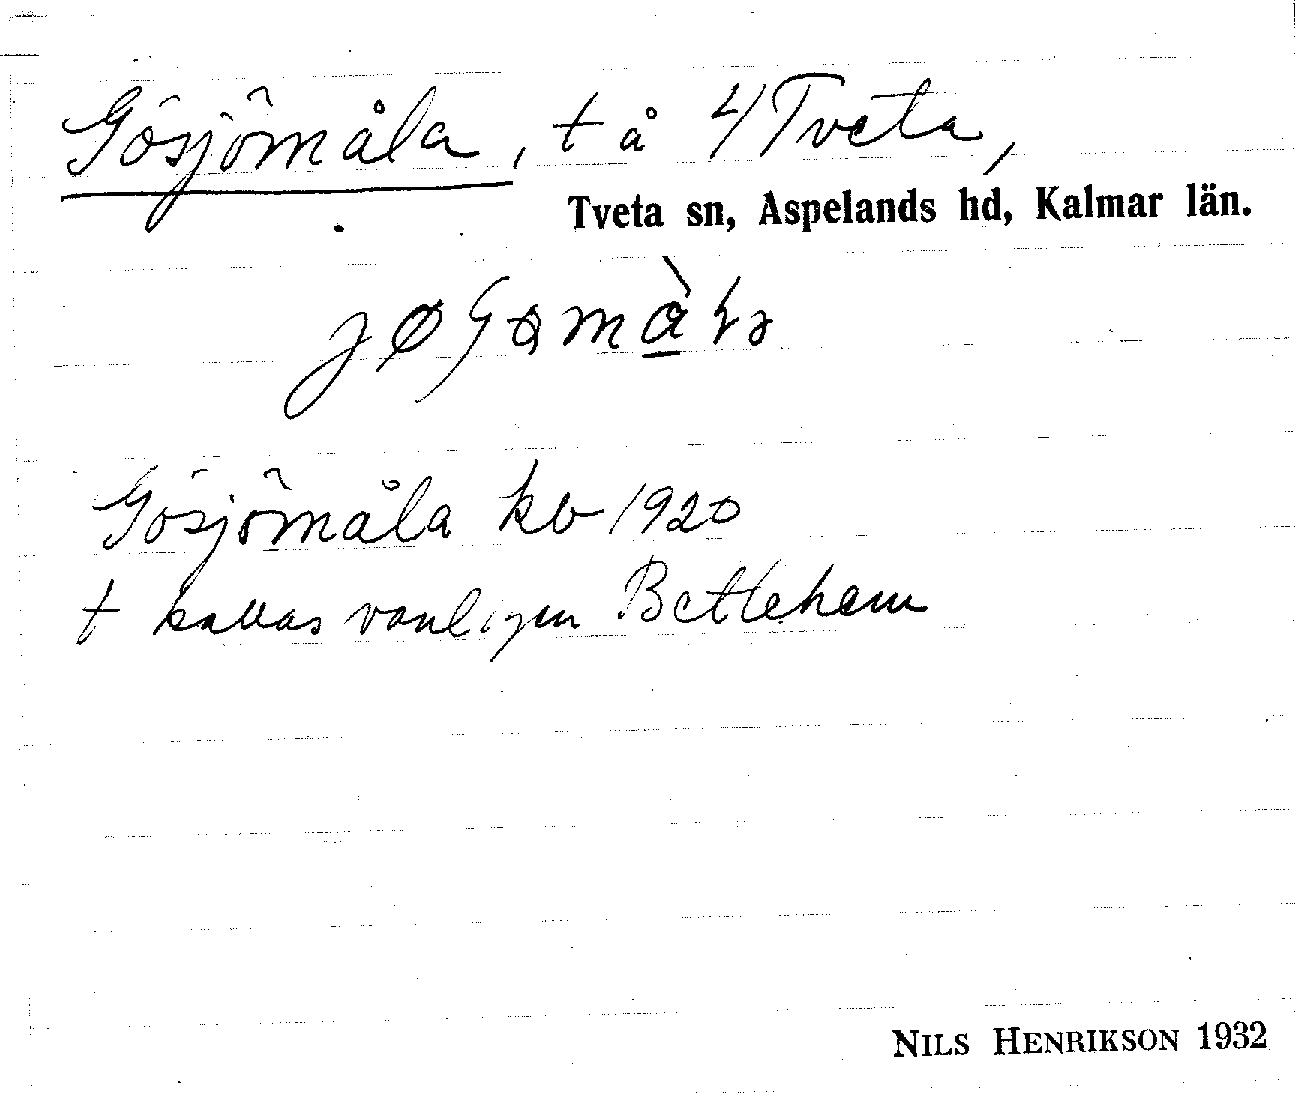 Gösjömåla, t å 4 Tveta,
Tveta sn, Aspelands hd, Kalmar län.
Gösjömåla kb 1920
t kallas vanligen Betlehem
NILS HENRIKSON 1932